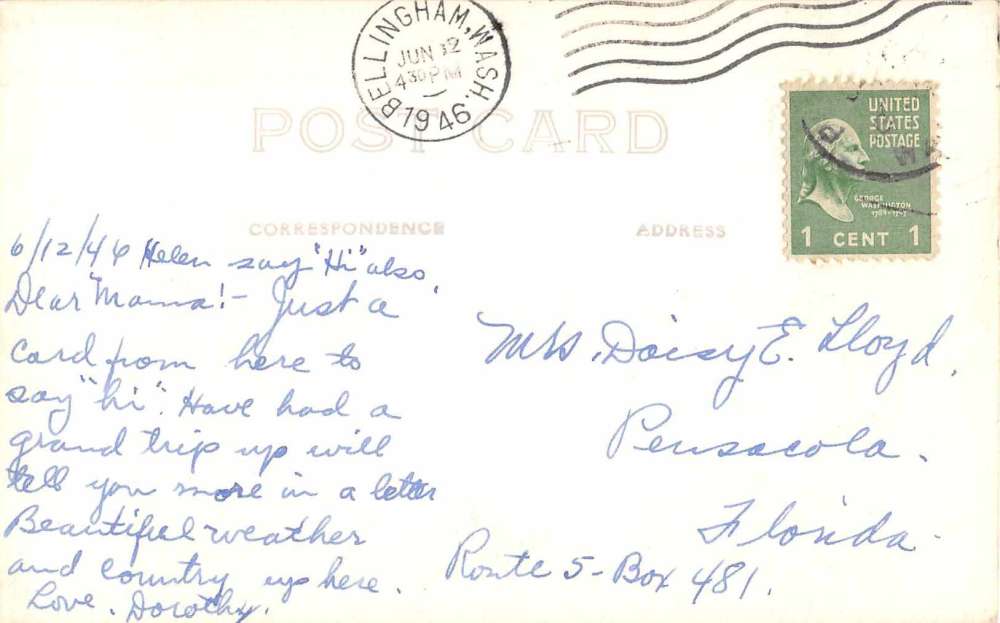 BELLINGHAM, WASH.
JUN 12
4 30 PM
1946
POST CARD
UNITED
STATES
POSTAGE
GEORGE
WASHINGTON
1 CENT 1
CORRESPONDENCE
ADDRESS
6/12/46 Helen say "Hi" also.
Dear Mama! - Just a
card from here to
say "hi". Have had a
grand trip up will
tell you more in a letter
Beautiful weather
and country up here.
Love. Dorothy.
Mrs. Daisy E. Lloyd.
Pensacola.
Florida.
Route 5 - Box 481.